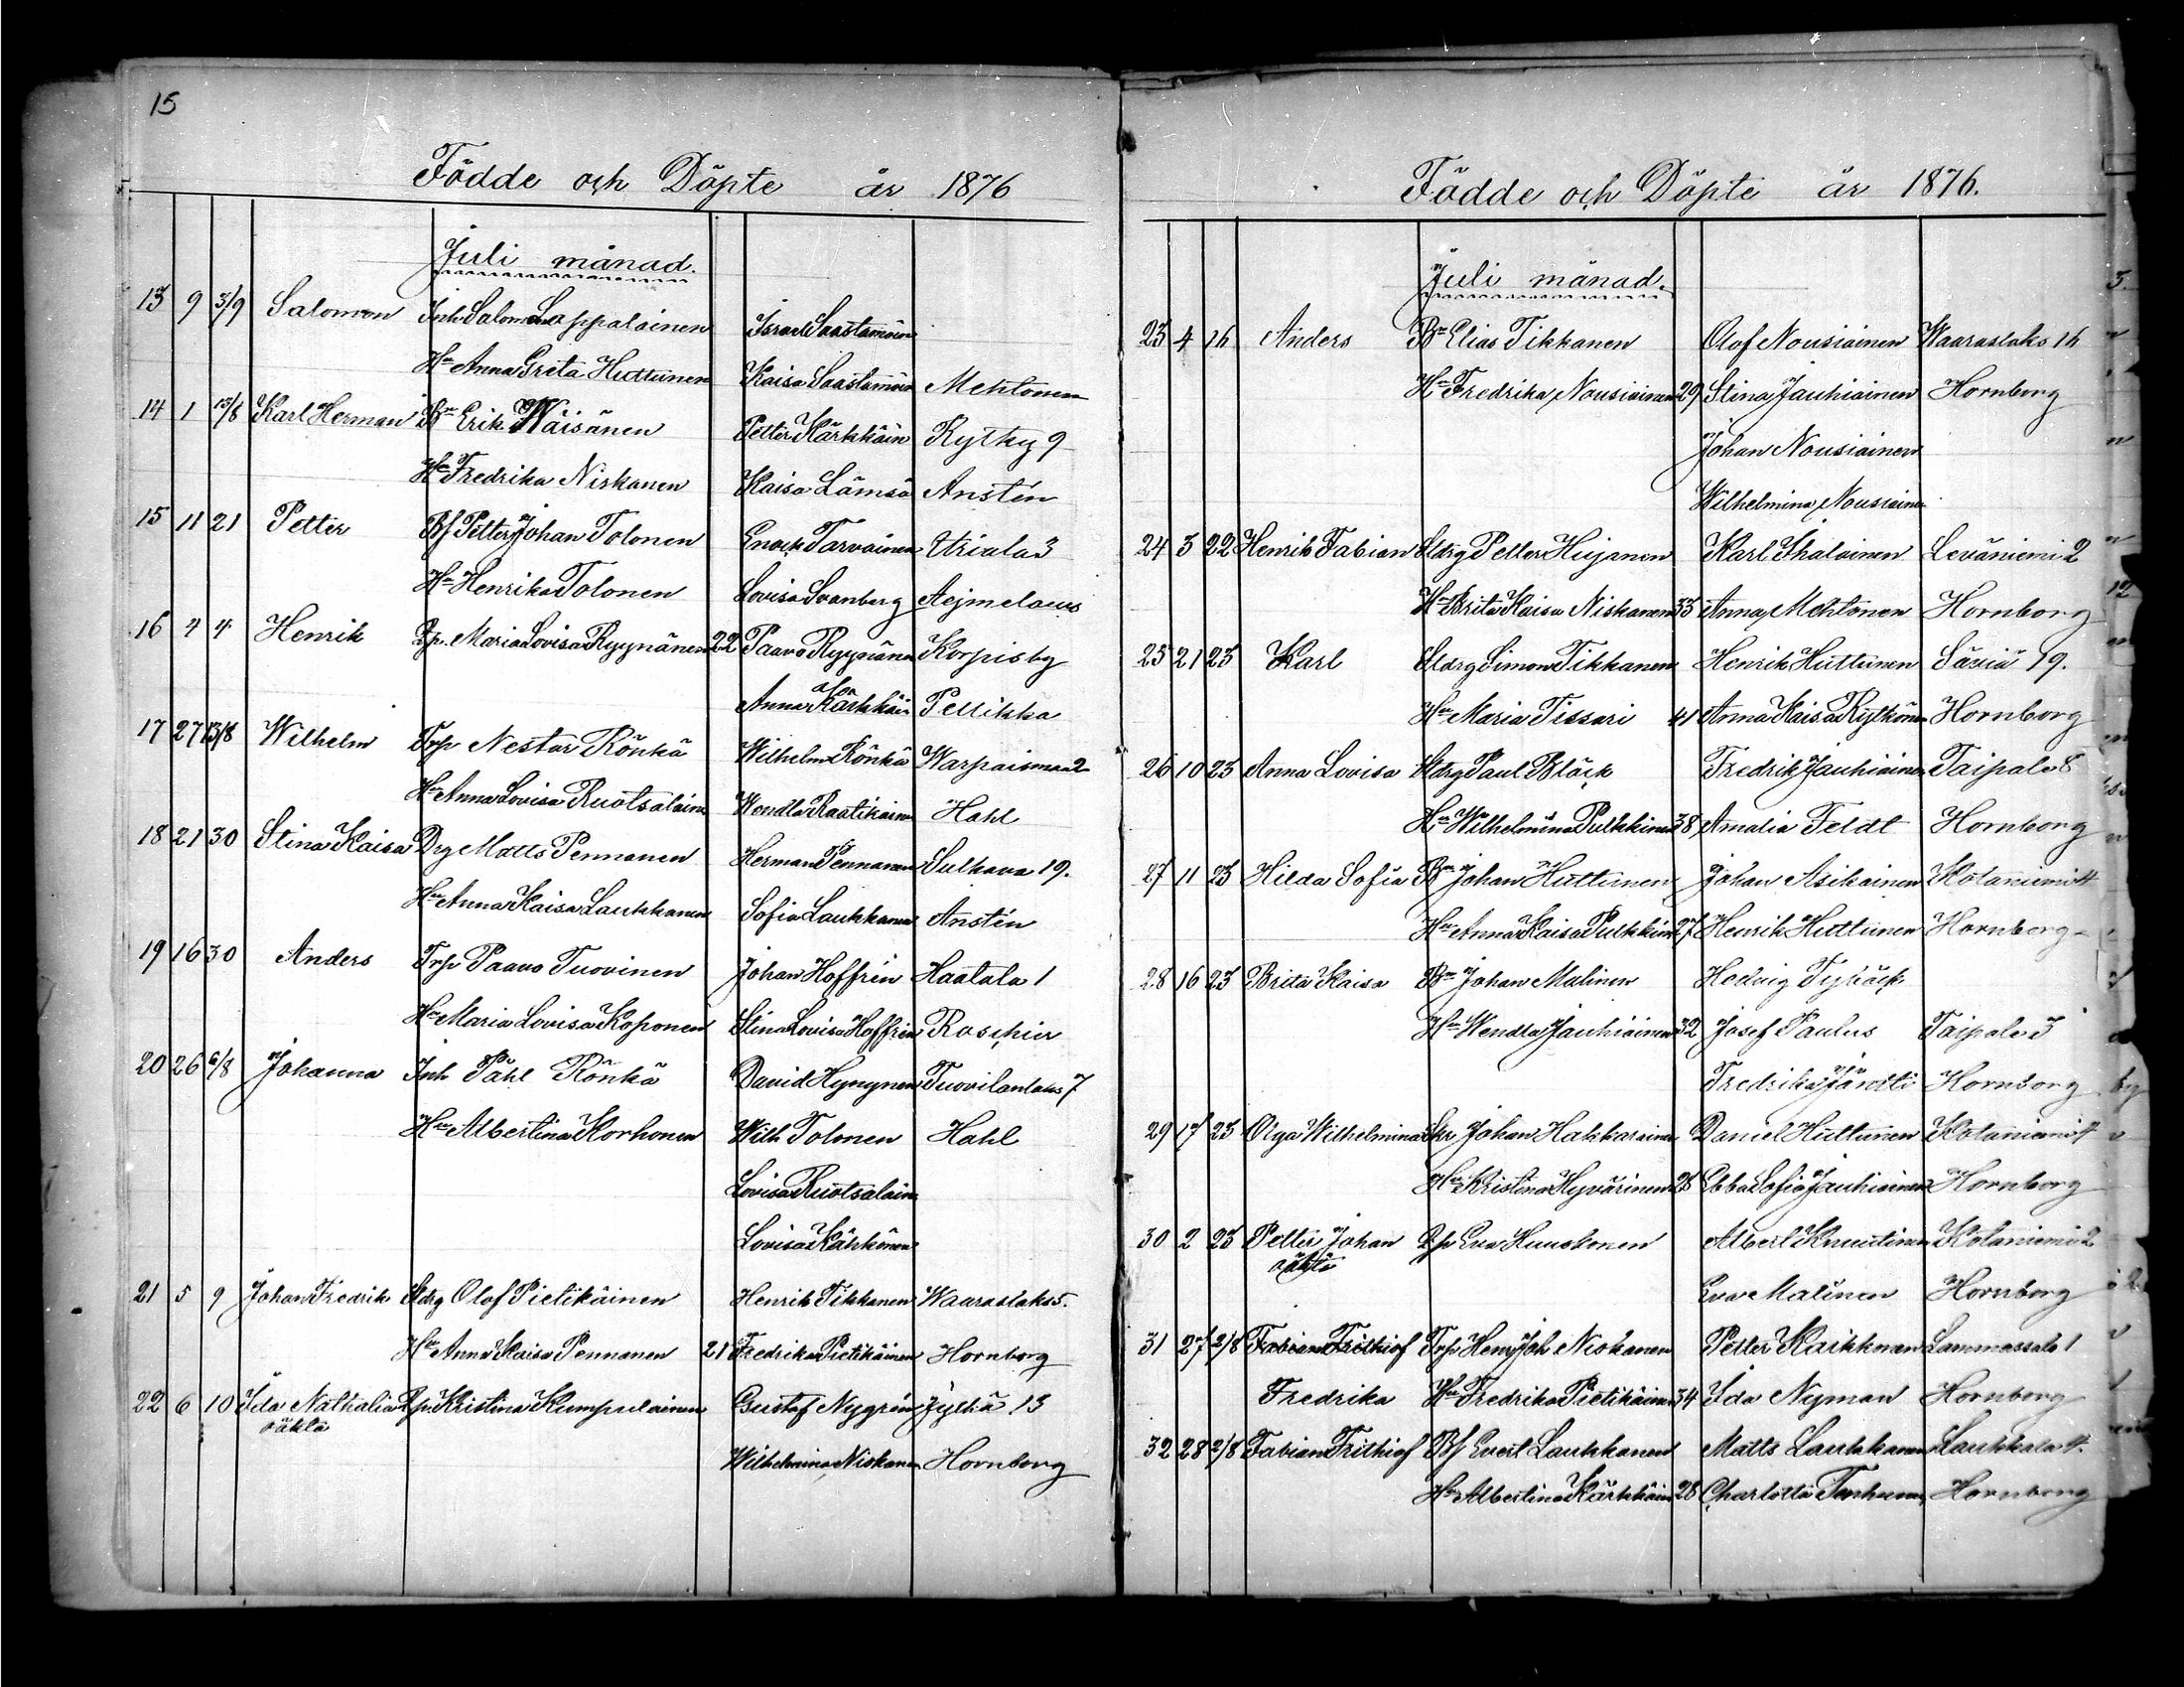 15
Födde och Döpte år 1876
Juli månad.
13 9 3/9 Salomon Inh Salomon Lappalainen Israel Saastamoin
Hu Anna Greta Huttunen Kaisa Saastamoin Mehtonen
14 1 13/8 Karl Herman Bn Erik Wäisänen Petter Kärkkäin Rytky 9
Hu Fredrika Niskanen Kaisa Lämsä Anstén
15 11 21 Petter Bf Petter Johan Tolonen Enock Tarvainen Uriala 3
Hu Henrika Tolonen Lovisa Svanberg Aejmelaeus
16 4 4 Henrik Maria Lovisa Ryynänen 22 Paavo Ryynänen Korpisby
Anna Kärkkäin Pellikka
17 27 13/8 Wilhelm Trp Nestar Rönkä Wilhelm Rönkä Warpaismaa 2
Hu Anna Lovisa Ruotsalain Wendla Raatikain Hahl
18 21 30 Stina Kaisa Drg Matts Pennanen Herman Pennanen Sulkava 19.
Hu Anna Kaisa Laukkanen Sofia Laukkanen Anstén
19 16 30 Anders Trp Paavo Tuovinen Johan Hoffrén Haatala 1
Hu Maria Lovisa Koponen Stina Lovisa Hoffrén Roschier
20 26 6/8 Johanna Inh Påhl Rönkä David Hynynen Tuovilanlaks 7
Hu Albertina Korhonen Wilh Tolonen Hahl
Lovisa Ruotsalain
Lovisa Kähkönen
21 5 9 Johan Fredrik Sldrg Olof Pietikäinen Henrik Tikkanen Waaraslaks 5.
Hu Anna Kaisa Pennanen 21 Fredrika Pietikäinen Hornborg
22 6 10 Ida Nathalia Kristina Kumpulainen Gustaf Nygrén Jylhä 13
oäkta Wilhelmina Niskanen Hornborg
Födde och Döpte år 1876.
Juli månad.
23 4 16 Anders Bn Elias Tikkanen Olof Nousiainen Waaraslaks 16
Hu Fredrika Nousiainen 29 Stina Jauhiainen Hornborg
Johan Nousiainen
Wilhelmina Nousiainen
24 3 22 Henrik Fabian Sldrg Petter Hujanen Karl Ihalainen Leväniemi 2
Hu Brita Kaisa Niskanen 33 Anna Mehtonen Hornborg
25 21 23 Karl Sldrg Simon Tikkanen Henrik Huttunen Säviä 19.
Hu Maria Tissari 41 Anna Kaisa Rytkönen Hornborg
26 10 23 Anna Lovisa Sldrg Paul Bläck Fredrik Jauhiainen Taipale 8
Hu Wilhelmina Pulkkinen 38 Amalia Feldt Hornborg
27 11 23 Hilda Sofia Bn Johan Huttunen Johan Asikainen Kotaniemi 4
Hu Anna Kaisa Pulkkinen 27 Henrik Huttunen Hornborg
28 16 23 Brita Kaisa Bn Johan Malinen Hedvig
Hu Wendla Jauhiainen 32 Josef Paulus Taipale 3
Fredrika Jäntti Hornborg
29 17 23 Olga Wilhelmina Skr Johan Hakkarainen Daniel Huttunen Kotaniemi 4
Hu Kristina Hyvärinen 28 Ebba Sofia Jauhiainen Hornborg
30 2 23 Petter Johan Eva Huuskonen Albert Knuutinen Kotaniemi 2
oäkta Eva Malinen Hornborg
31 27 2/8 Fabian Frithiof Trp Henr Joh Niskanen Petter Kaikkonen Lammassalo 1
Fredrika Hu Fredrika Pietikäinen 34 Ida Nyman Hornborg
32 28 2/8 Fabian Frithiof Bf Evert Laukkanen Matts Laukkanen Laukkala 4.
Hu Albertina Kärkkäin 28 Charlotta Hornborg